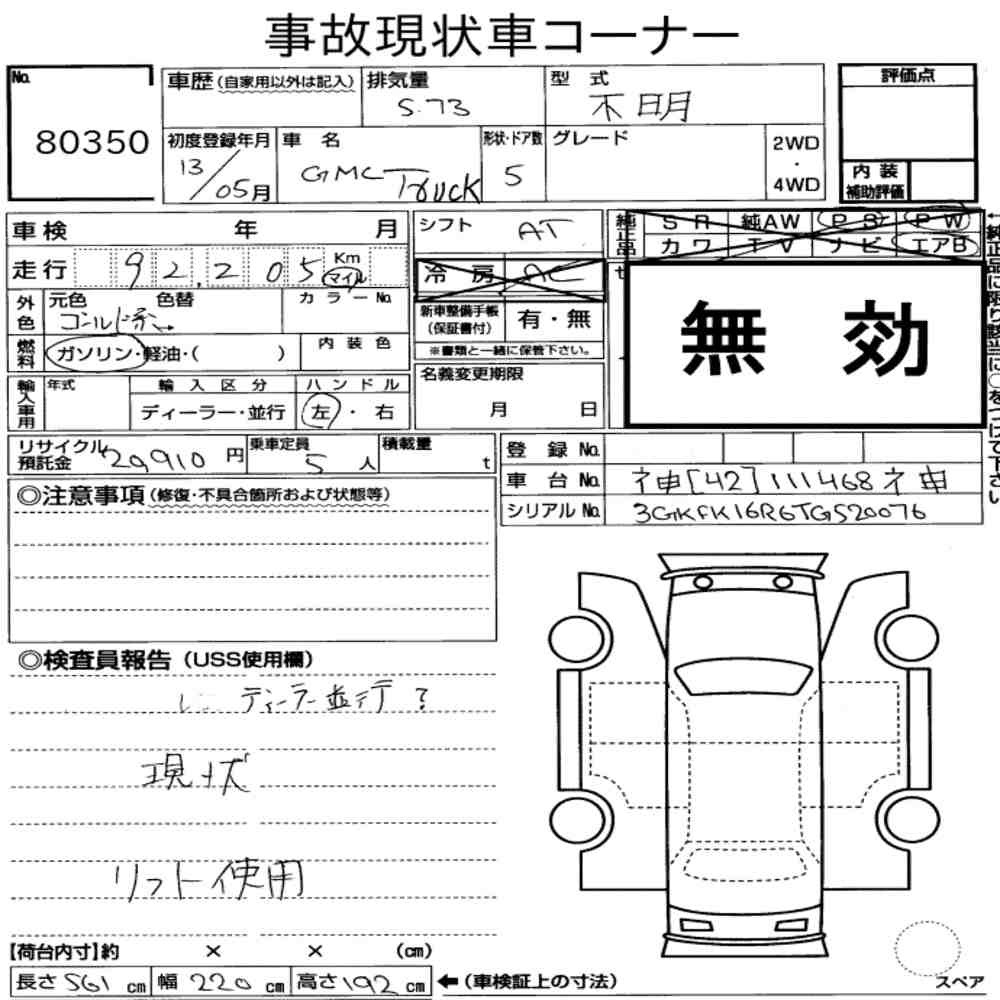 事故現状車コーナー
No. 80350
車歴(自家用以外は記入) 排気量 5.73 型式 不明 評価点
初度登録年月 13/05月 車名 GMC Truck 形状・ドア数 5 グレード 2WD・4WD
内装補助評価
車検 年 月 シフト AT 純正品 SR 純AW PS PW
走行 92,205 Km マイル 冷房 AC カワ TV ナビ エアB
外色 元色 色替 ゴールド系 カラーNo.
新車整備手帳(保証書付) 有・無
※書類と一緒に保管下さい。
無効
純正品に限り該当に○をつけて下さい
燃料 ガソリン・軽油・( ) 内装色
名義変更期限 月 日
輸入車用 年式 輸入区分 ハンドル
ディーラー・並行 左・右
リサイクル預託金 20910円 乗車定員 5人 積載量 t
登録No.
車台No. 神[42]111468神
シリアルNo. 3GKFK16R6TG520076
◎注意事項(修復・不具合箇所および状態等)
◎検査員報告(USS使用欄)
ディーラー並行?
現状
リフト使用
【荷台内寸】約 × × (cm)
長さ561cm 幅220cm 高さ192cm ←(車検証上の寸法)
スペア